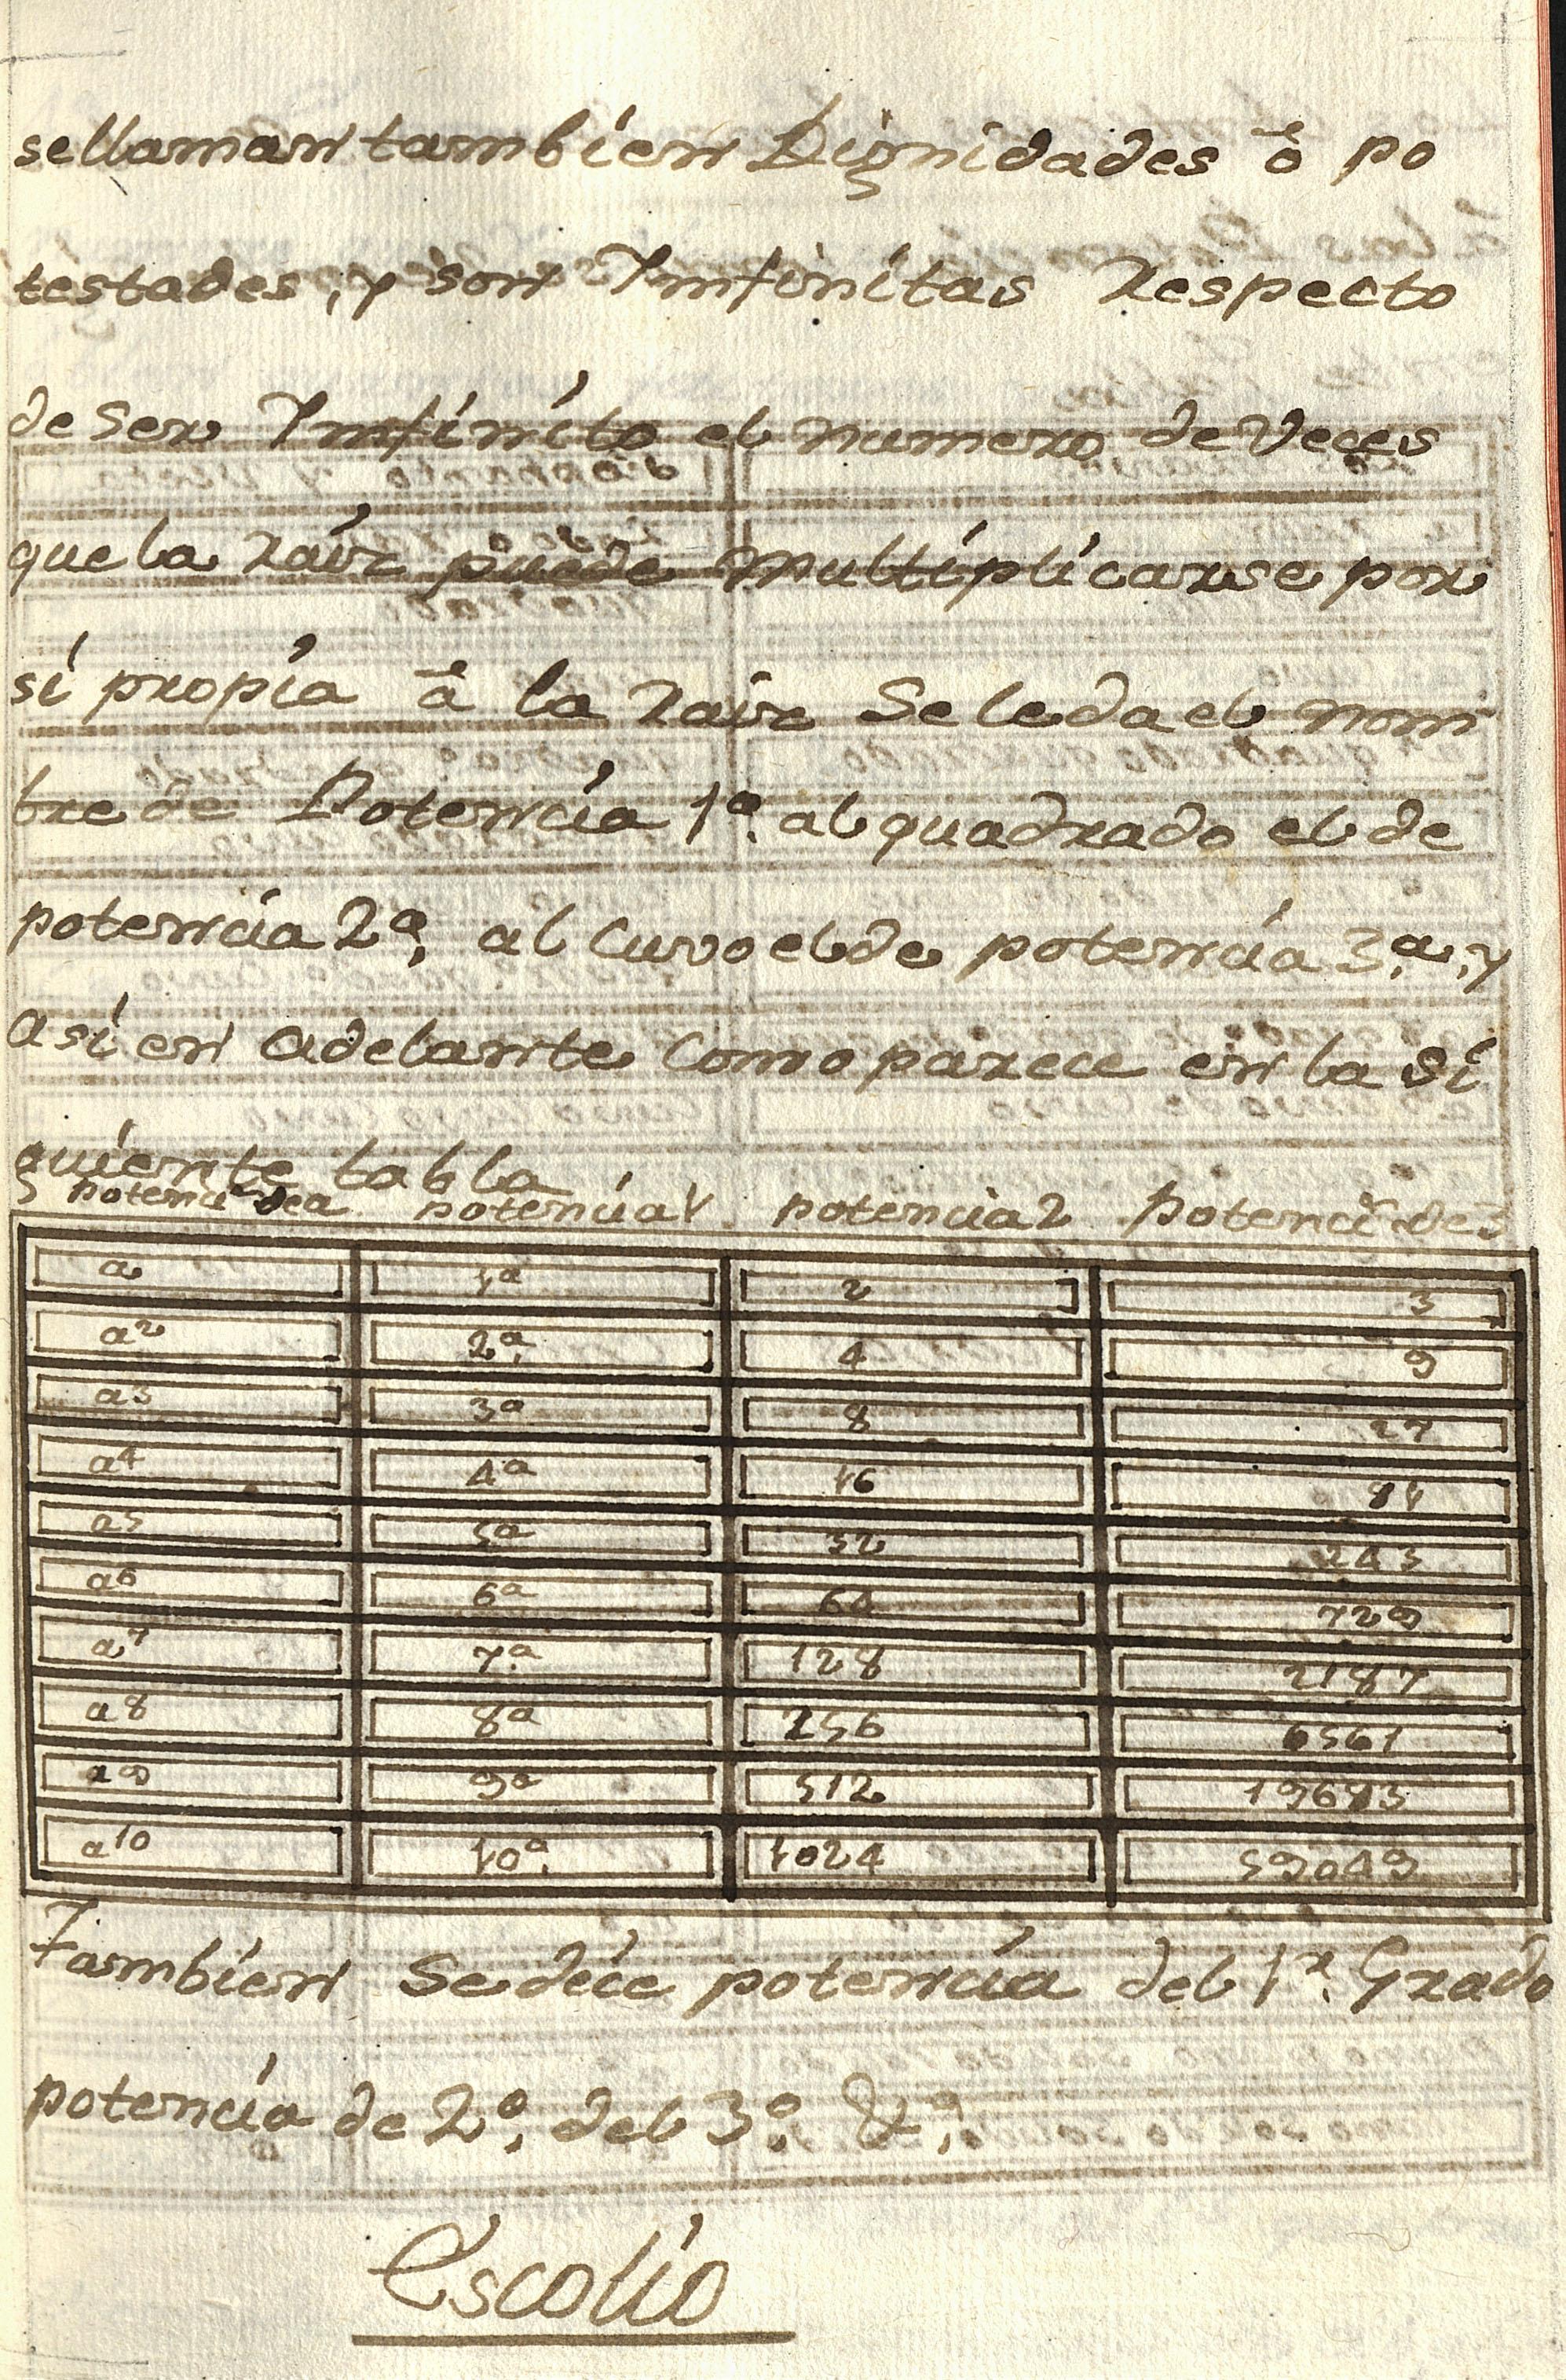 se llaman tambien Dignidades ô po
testades, y son Infinitas Respecto
de Ser Infinito el numero de Veces
que la Raiz puede Multiplicarse por
si propia â la Raiz Se le da el nom
bre de Potencia 1ª. al quadrado el de
potencia 2ª, al Cuvo el de potencia 3ª, y
asi en adelante Como parece en la si
guiente tabla
potencias de a potencia 1 potencia 2 potencias de 3
a 1ª 2 3
a2 2ª. 4 9
a3 3ª 8 27
a4 4ª 16 81
a5 5ª 32 243
a6 6ª 64 729
a7 7ª 128 2187
a8 8ª 256 6561
a9 9ª 512 19683
a10 10ª. 1024 59049
Tambien Se dice potencia del 1r. Grado
potencia de 2º, del 3º. &ª,
Escolio